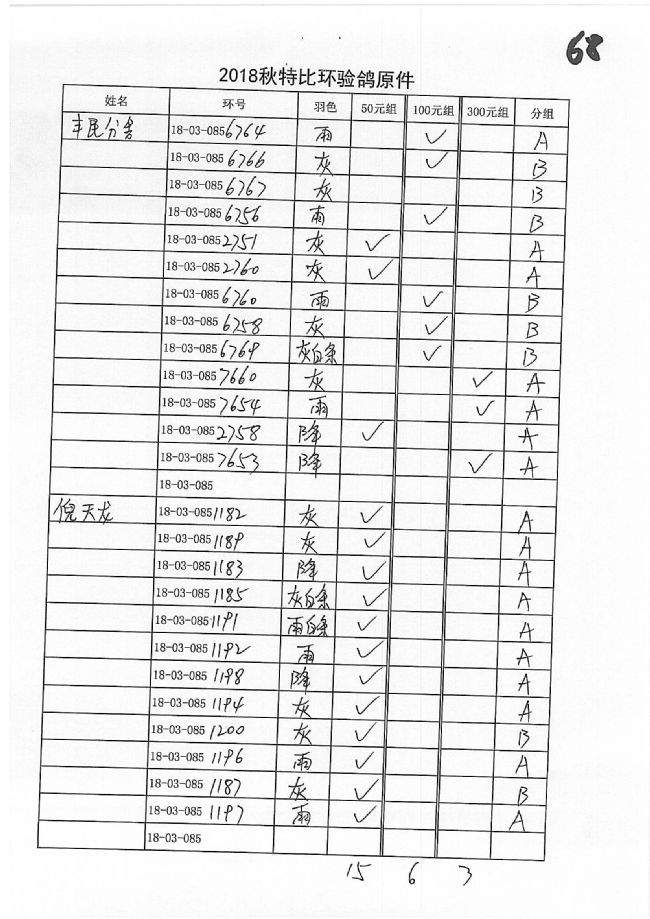 68
2018秋特比环验鸽原件
姓名 环号 羽色 50元组 100元组 300元组 分组
丰民分舍 18-03-0856764 雨 ✓ A
18-03-0856766 灰 ✓ B
18-03-0856767 灰 B
18-03-0856756 雨 ✓ B
18-03-0852751 灰 ✓ A
18-03-0852760 灰 ✓ A
18-03-0856760 雨 ✓ B
18-03-0856758 灰 ✓ B
18-03-0856769 灰白条 ✓ B
18-03-0857660 灰 ✓ A
18-03-0857654 雨 ✓ A
18-03-0852758 降 ✓ A
18-03-0857653 降 ✓ A
18-03-085
倪天龙 18-03-0851182 灰 ✓ A
18-03-0851189 灰 ✓ A
18-03-0851183 降 ✓ A
18-03-0851185 灰白条 ✓ A
18-03-0851191 雨白条 ✓ A
18-03-0851192 雨 ✓ A
18-03-0851198 降 ✓ A
18-03-0851194 灰 ✓ A
18-03-0851200 灰 ✓ B
18-03-0851196 雨 ✓ A
18-03-0851187 灰 ✓ B
18-03-0851197 雨 ✓ A
18-03-085
15 6 3